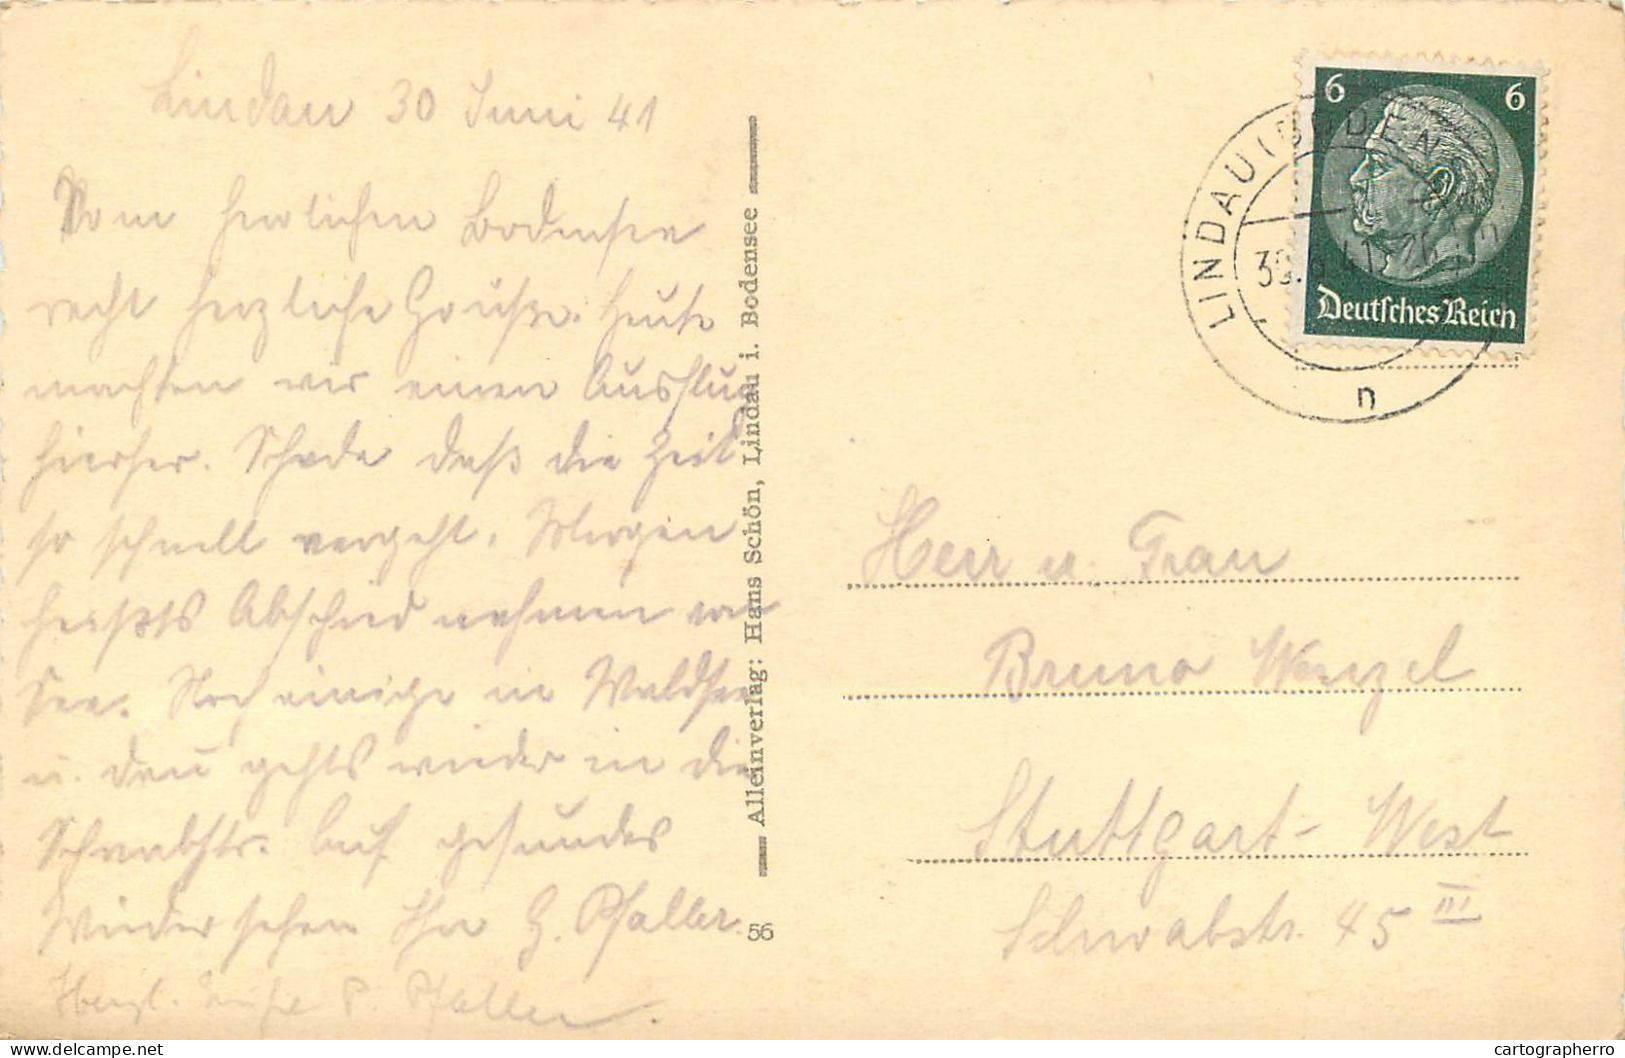 Lindau 30 Juni 41
Vom herrlichen Bodensee
recht herzliche Grüße. Heute
machten wir einen Ausflug
hierher. Schade daß die Zeit
so schnell vergeht. Morgen
heißts Abschied nehmen vom
See. Noch einige in Waldsee
u. dan gehts wieder in die
Schwabstr. Auf gesundes
Wiedersehen Ihr G. Pfaller
Herzl. Grüße P. Pfaller.
Alleinverlag: Hans Schön, Lindau i. Bodensee
56
6 6
Deutsches Reich
LINDAU (BODENSEE)
30.6.41
n
Herr u. Frau
Bruno Wenzel
Stuttgart-West
Schwabstr. 45 III
cartographerro